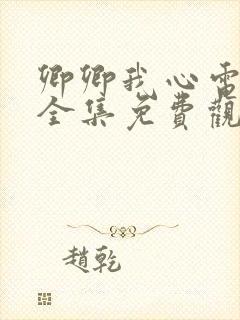 卿卿我心電
全集免費觀
趙乾